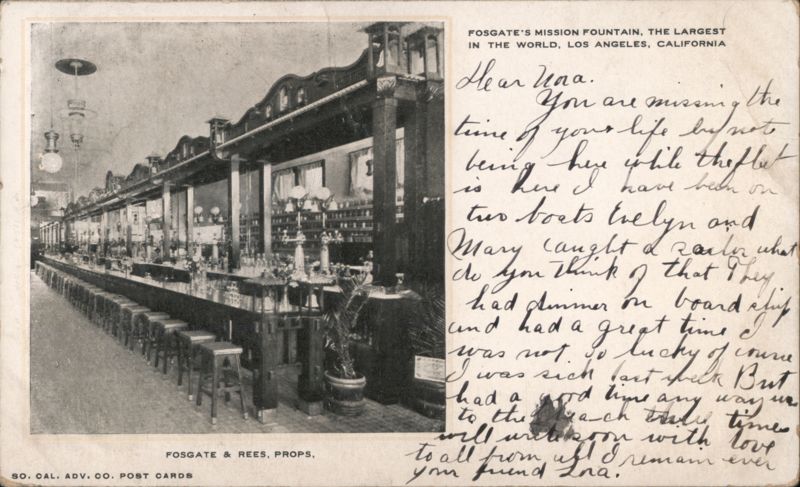 FOSGATE'S MISSION FOUNTAIN, THE LARGEST
IN THE WORLD, LOS ANGELES, CALIFORNIA
Dear Nora.
You are missing the
time of your life by not
being here while the fleet
is here I have been on
two boats Evelyn and
Mary caught a sailor what
do you think of that They
had dinner on board ship
and had a great time I
was not so lucky of course
I was sick last week But
had a good time any way
to the beach three times
will write soon with love
to all from all I remain ever
your friend Lora.
FOSGATE & REES, PROPS,
SO. CAL. ADV. CO. POST CARDS